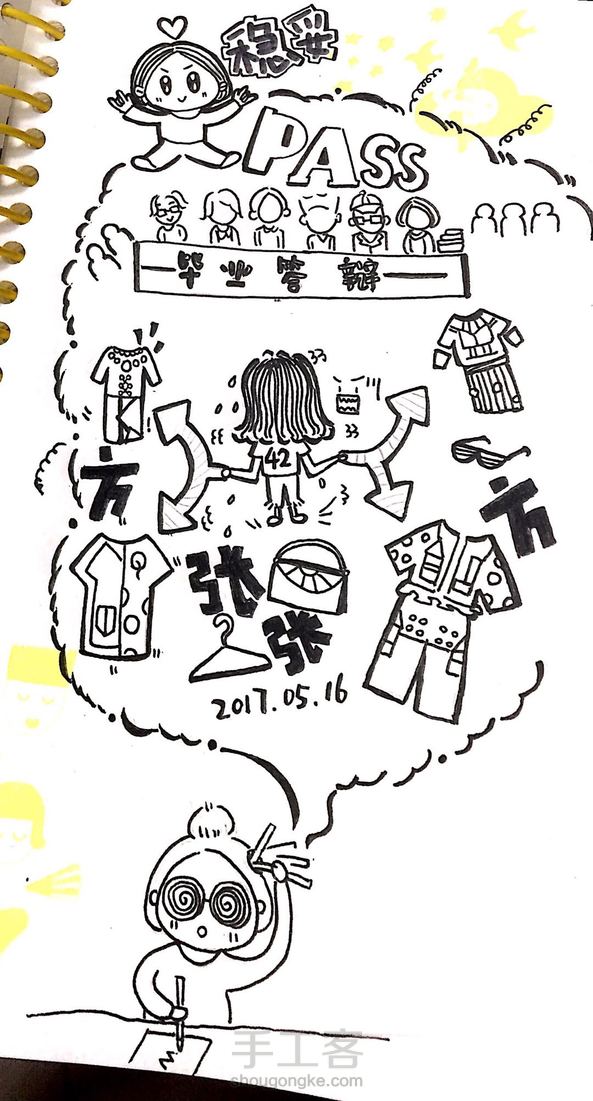 稳妥
PASS
毕业答辩
42
方
方
张
张
2017.05.16
手工客
shougongke.com